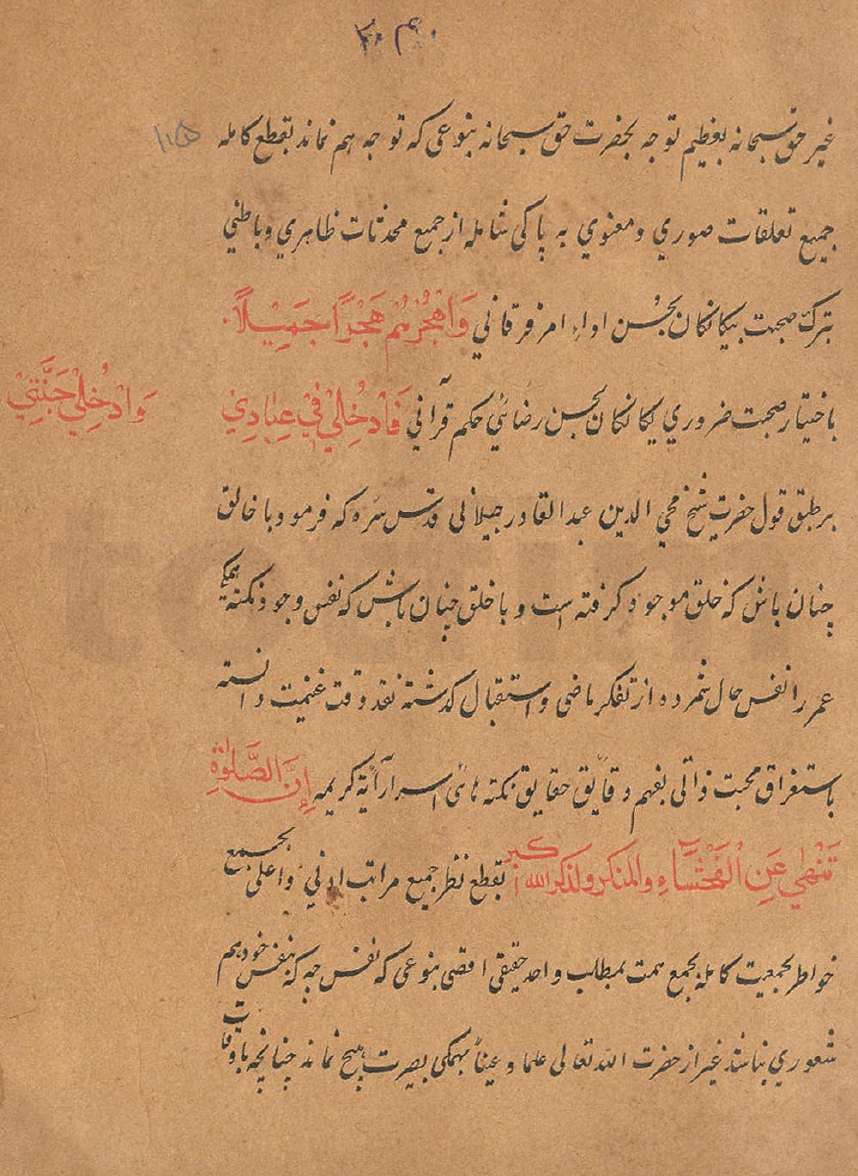 ۴۰۴۰
غیر حق سبحانه بعظیم توجه بحضرت حق سبحانه بنوعی که توجه هم نماند بقطع کامله
جمیع تعلقات صوری و معنوی به پاکی شامله از جمیع محدثات ظاهری و باطنی
بترک صحبت بیکانکان بحسن اداء امر فرقانی وَاهْجُرْهُمْ هَجْرًا جَمِیلًا
باختیار صحبت ضروری یکانکان بحسن رضائی حکم قرآنی فَادْخُلِي فِي عِبَادِي وَادْخُلِي جَنَّتِي
بر طبق قول حضرت شیخ محی الدین عبد القادر جیلانی قدس سره که فرمود با خالق
چنان باش که خلق موجود کرفته است و با خلق چنان باش که نفس وجود نکته
عمر را نفس حال شمرده از تفکر ماضی و استقبال کذشته نقد وقت غنیمت دانسته
باستغراق محبت ذاتی بفهم دقایق حقایق نکته های اسرار آیة کریمه إِنَّ الصَّلٰوةَ
تَنْهٰی عَنِ الْفَحْشَاءِ والمنکر ولذکر الله اکبر بقطع نظر جمیع مراتب ادنی و اعلی بجمیع
خواطر بجمعیت کامله بجمع همت بمطلب واحد حقیقی اقصی بنوعی که نفس چه که بنفس خود هم
شعوری نباشد غیر از حضرت الله تعالی علما و عیناً بهمکی بصیرت هیچ نماند چنانچه باوقات